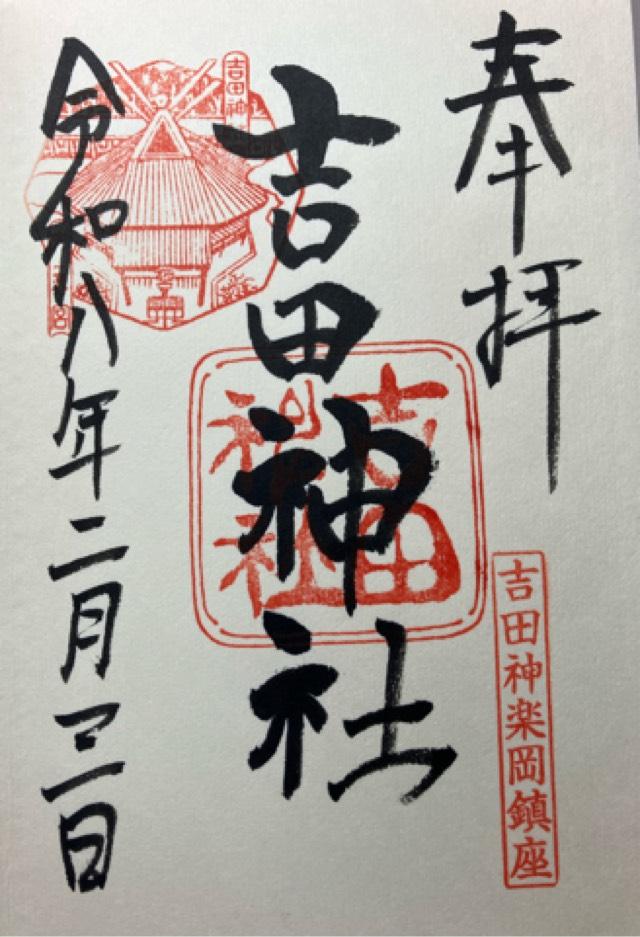 奉拝
吉田神楽岡鎮座
吉田神社
吉田
神社
吉田神
令和八年二月三日